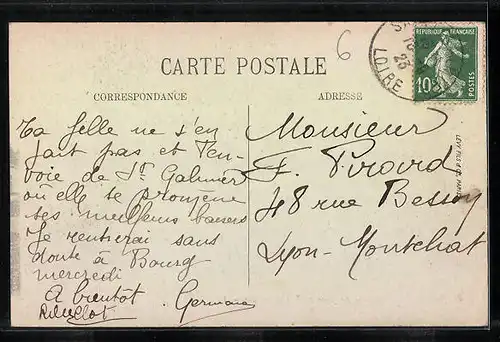 6
CARTE POSTALE
CORRESPONDANCE
ADRESSE
REPUBLIQUE FRANÇAISE
10c
POSTES
23
LOIRE
Ta fille ne s'en
fait pas et t'en-
voie de St Galmier
où elle se promène
ses meilleurs baisers
Je rentrerai sans
doute à Bourg
mercredi
A bientôt Germaine
Monsieur
F. Pirard
48 rue Besson
Lyon-Montchat